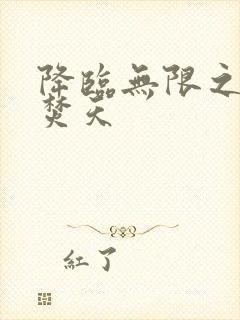 降臨無限之
焚天
紅了